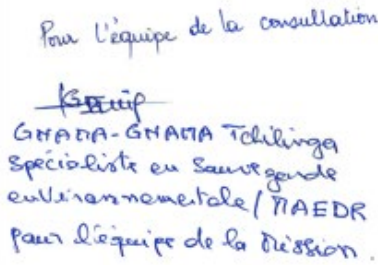 Pour l'équipe de la consultation
GNAMA-GNAMA Tchilinga
Spécialiste en Sauvegarde
environnementale/MAEDR
pour l'équipe de la Mission.